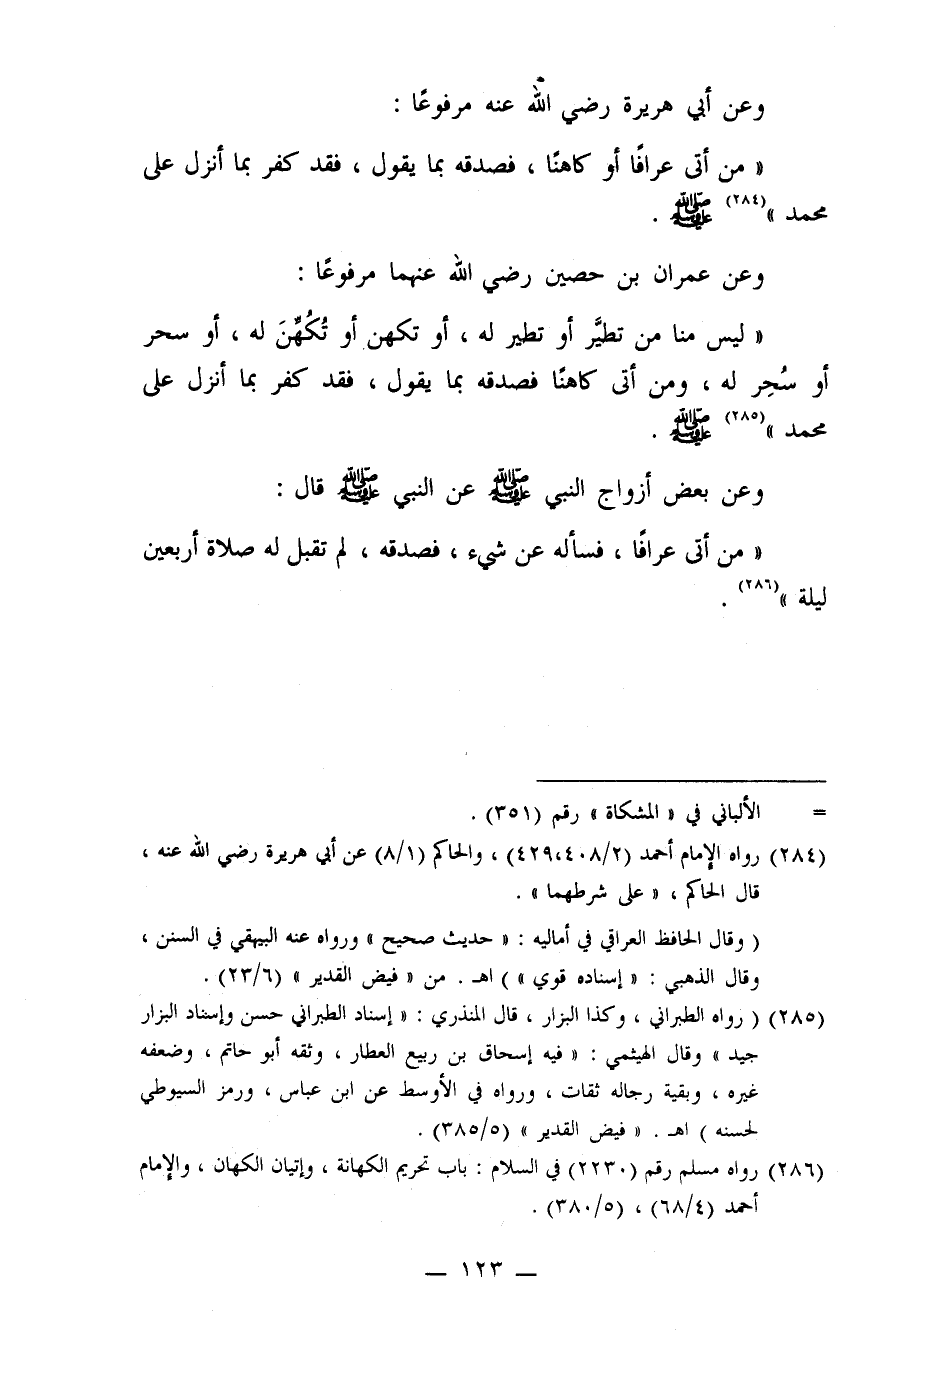 وعن أبي هريرة رضي الله عنه مرفوعًا :
« من أتى عرافًا أو كاهنًا ، فصدقه بما يقول ، فقد كفر بما أنزل على
محمد »(٢٨٤) ﷺ .
وعن عمران بن حصين رضي الله عنهما مرفوعًا :
« ليس منا من تطيَّر أو تطير له ، أو تكهن أو تُكُهِّنَ له ، أو سحر
أو سُحِر له ، ومن أتى كاهنًا فصدقه بما يقول ، فقد كفر بما أنزل على
محمد »(٢٨٥) ﷺ .
وعن بعض أزواج النبي ﷺ عن النبي ﷺ قال :
« من أتى عرافًا ، فسأله عن شيء ، فصدقه ، لم تقبل له صلاة أربعين
ليلة »(٢٨٦) .
= الألباني في « المشكاة » رقم (٣٥١) .
(٢٨٤) رواه الإمام أحمد (٤٢٩،٤٠٨/٢) ، والحاكم (٨/١) عن أبي هريرة رضي الله عنه ،
قال الحاكم ، « على شرطهما » .
( وقال الحافظ العراقي في أماليه : « حديث صحيح » ورواه عنه البيهقي في السنن ،
وقال الذهبي : « إسناده قوي » ) اهـ . من « فيض القدير » (٢٣/٦) .
(٢٨٥) ( رواه الطبراني ، وكذا البزار ، قال المنذري : « إسناد الطبراني حسن وإسناد البزار
جيد » وقال الهيثمي : « فيه إسحاق بن ربيع العطار ، وثقه أبو حاتم ، وضعفه
غيره ، وبقية رجاله ثقات ، ورواه في الأوسط عن ابن عباس ، ورمز السيوطي
لحسنه ) اهـ . « فيض القدير » (٣٨٥/٥) .
(٢٨٦) رواه مسلم رقم (٢٢٣٠) في السلام : باب تحريم الكهانة ، وإتيان الكهان ، والإمام
أحمد (٦٨/٤) ، (٣٨٠/٥) .
— ١٢٣ —